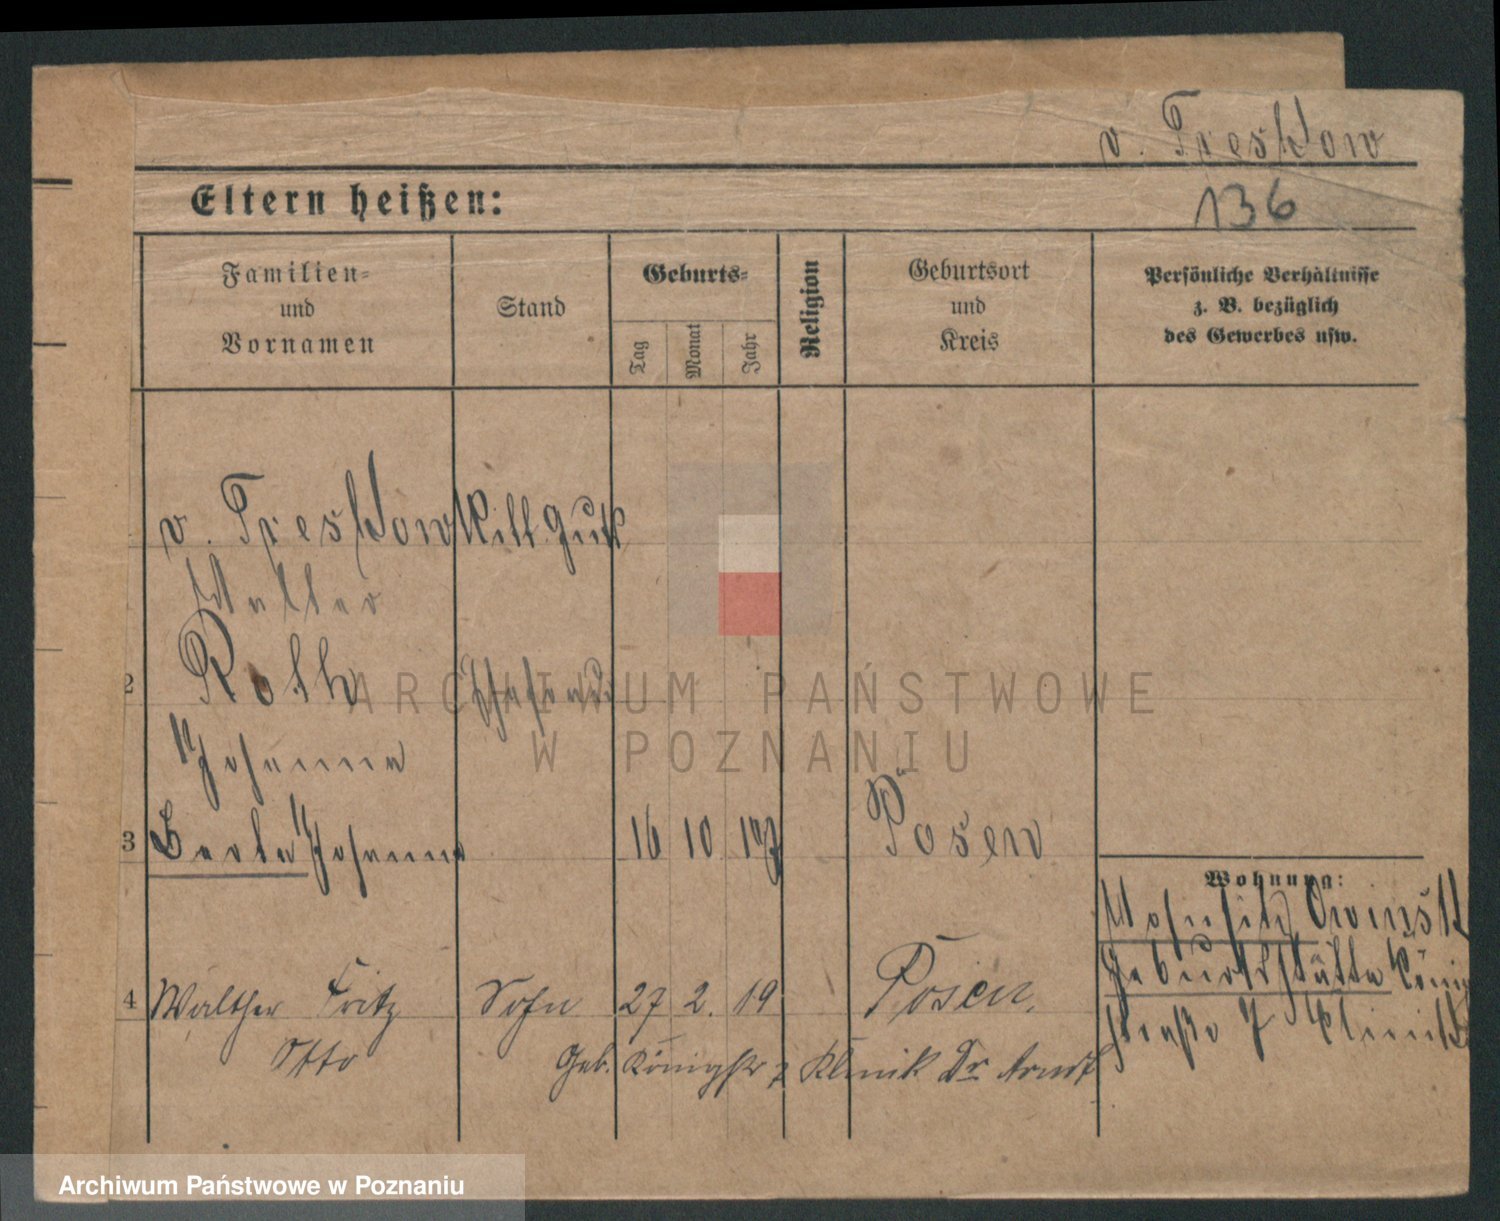 v. Treskow
Eltern heißen:
136
Familien=
und
Vornamen
Stand
Geburts=
Tag
Monat
Jahr
Religion
Geburtsort
und
Kreis
Persönliche Verhältnisse
z. B. bezüglich
des Gewerbes usw.
v. Treskow Ritt. Gutb
Walter
2 Roth
Johanna
3 Johanna 16 10 17 Posen
Wohnung:
Wohnsitz Owinsk
Geburtsstätte König
4 Walther Fritz Sohn 27 2. 19 Posen.
straße 7 Klinik
Otto Geb. Königstr 7 Klinik Dr Arndt
ARCHIWUM PAŃSTWOWE
W POZNANIU
Archiwum Państwowe w Poznaniu